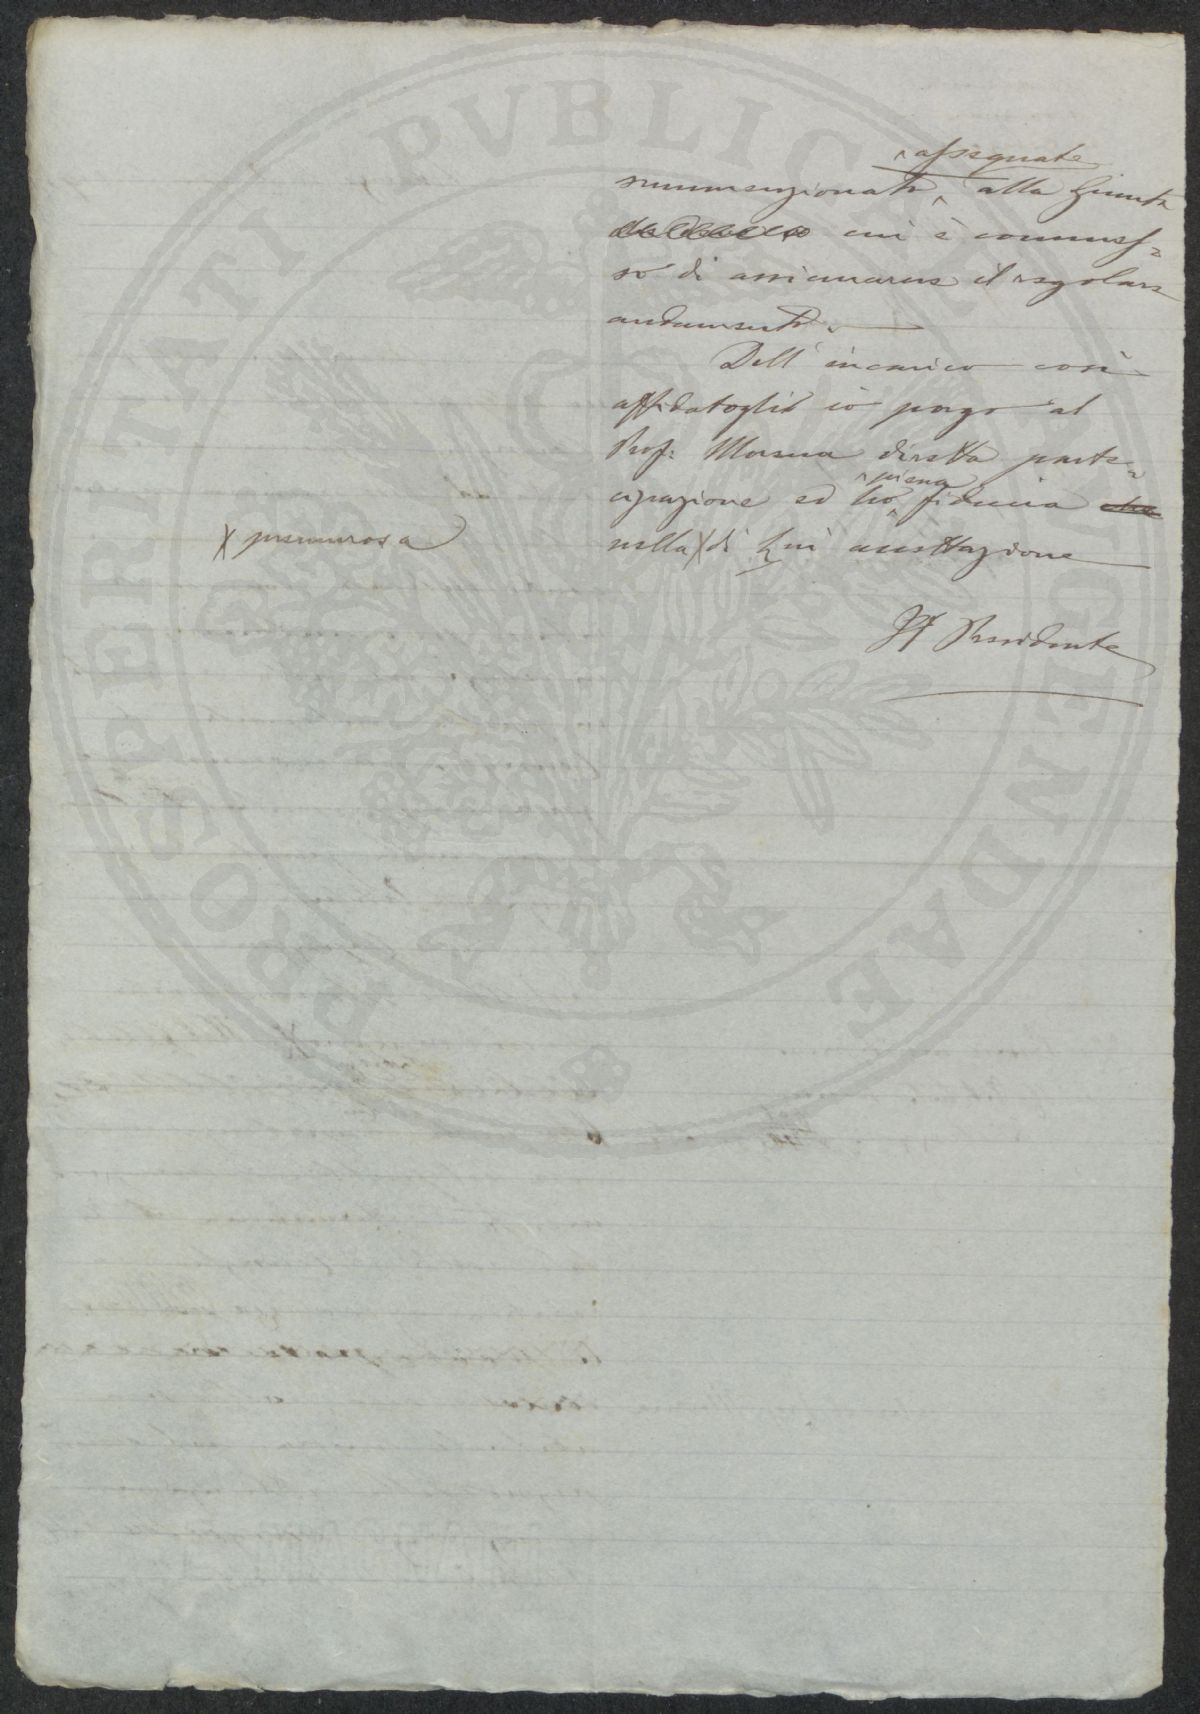 PROSPERITATI PVBLICAE AVGENDAE
assegnate
summenzionate, alla Giunta
cui è commes=
so di assicurarne il regolare
andamento.
Dell' incarico così
affidatogli io porgo al
Prof: Morena diretta parte=
cipazione ed ho fiducia che
piena
nella X di Lui accettazione
X premurosa
Il Presidente